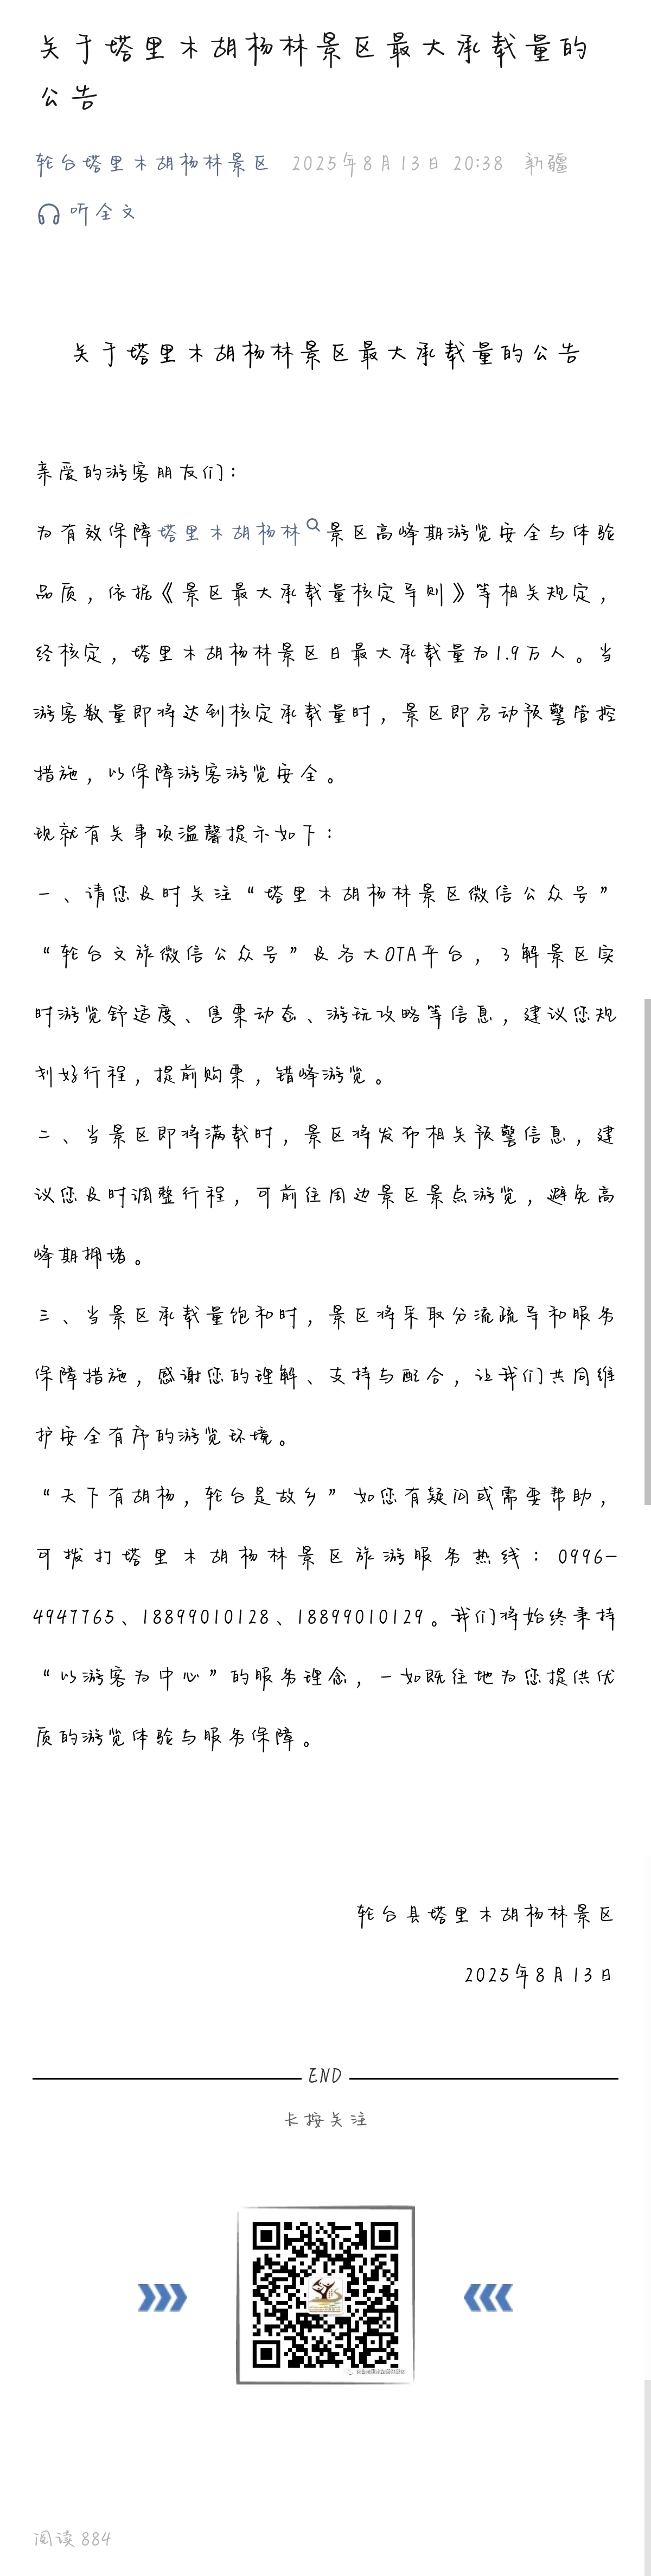 关于塔里木胡杨林景区最大承载量的
公告
轮台塔里木胡杨林景区 2025年8月13日 20:38 新疆
听全文
关于塔里木胡杨林景区最大承载量的公告
亲爱的游客朋友们：
为有效保障塔里木胡杨林景区高峰期游览安全与体验
品质，依据《景区最大承载量核定导则》等相关规定，
经核定，塔里木胡杨林景区日最大承载量为1.9万人。当
游客数量即将达到核定承载量时，景区即启动预警管控
措施，以保障游客游览安全。
现就有关事项温馨提示如下：
一、请您及时关注“塔里木胡杨林景区微信公众号”
“轮台文旅微信公众号”及各大OTA平台，了解景区实
时游览舒适度、售票动态、游玩攻略等信息，建议您规
划好行程，提前购票，错峰游览。
二、当景区即将满载时，景区将发布相关预警信息，建
议您及时调整行程，可前往周边景区景点游览，避免高
峰期拥堵。
三、当景区承载量饱和时，景区将采取分流疏导和服务
保障措施，感谢您的理解、支持与配合，让我们共同维
护安全有序的游览环境。
“天下有胡杨，轮台是故乡”如您有疑问或需要帮助，
可拨打塔里木胡杨林景区旅游服务热线：0996-
4947765、18899010128、18899010129。我们将始终秉持
“以游客为中心”的服务理念，一如既往地为您提供优
质的游览体验与服务保障。
轮台县塔里木胡杨林景区
2025年8月13日
END
长按关注
阅读 884